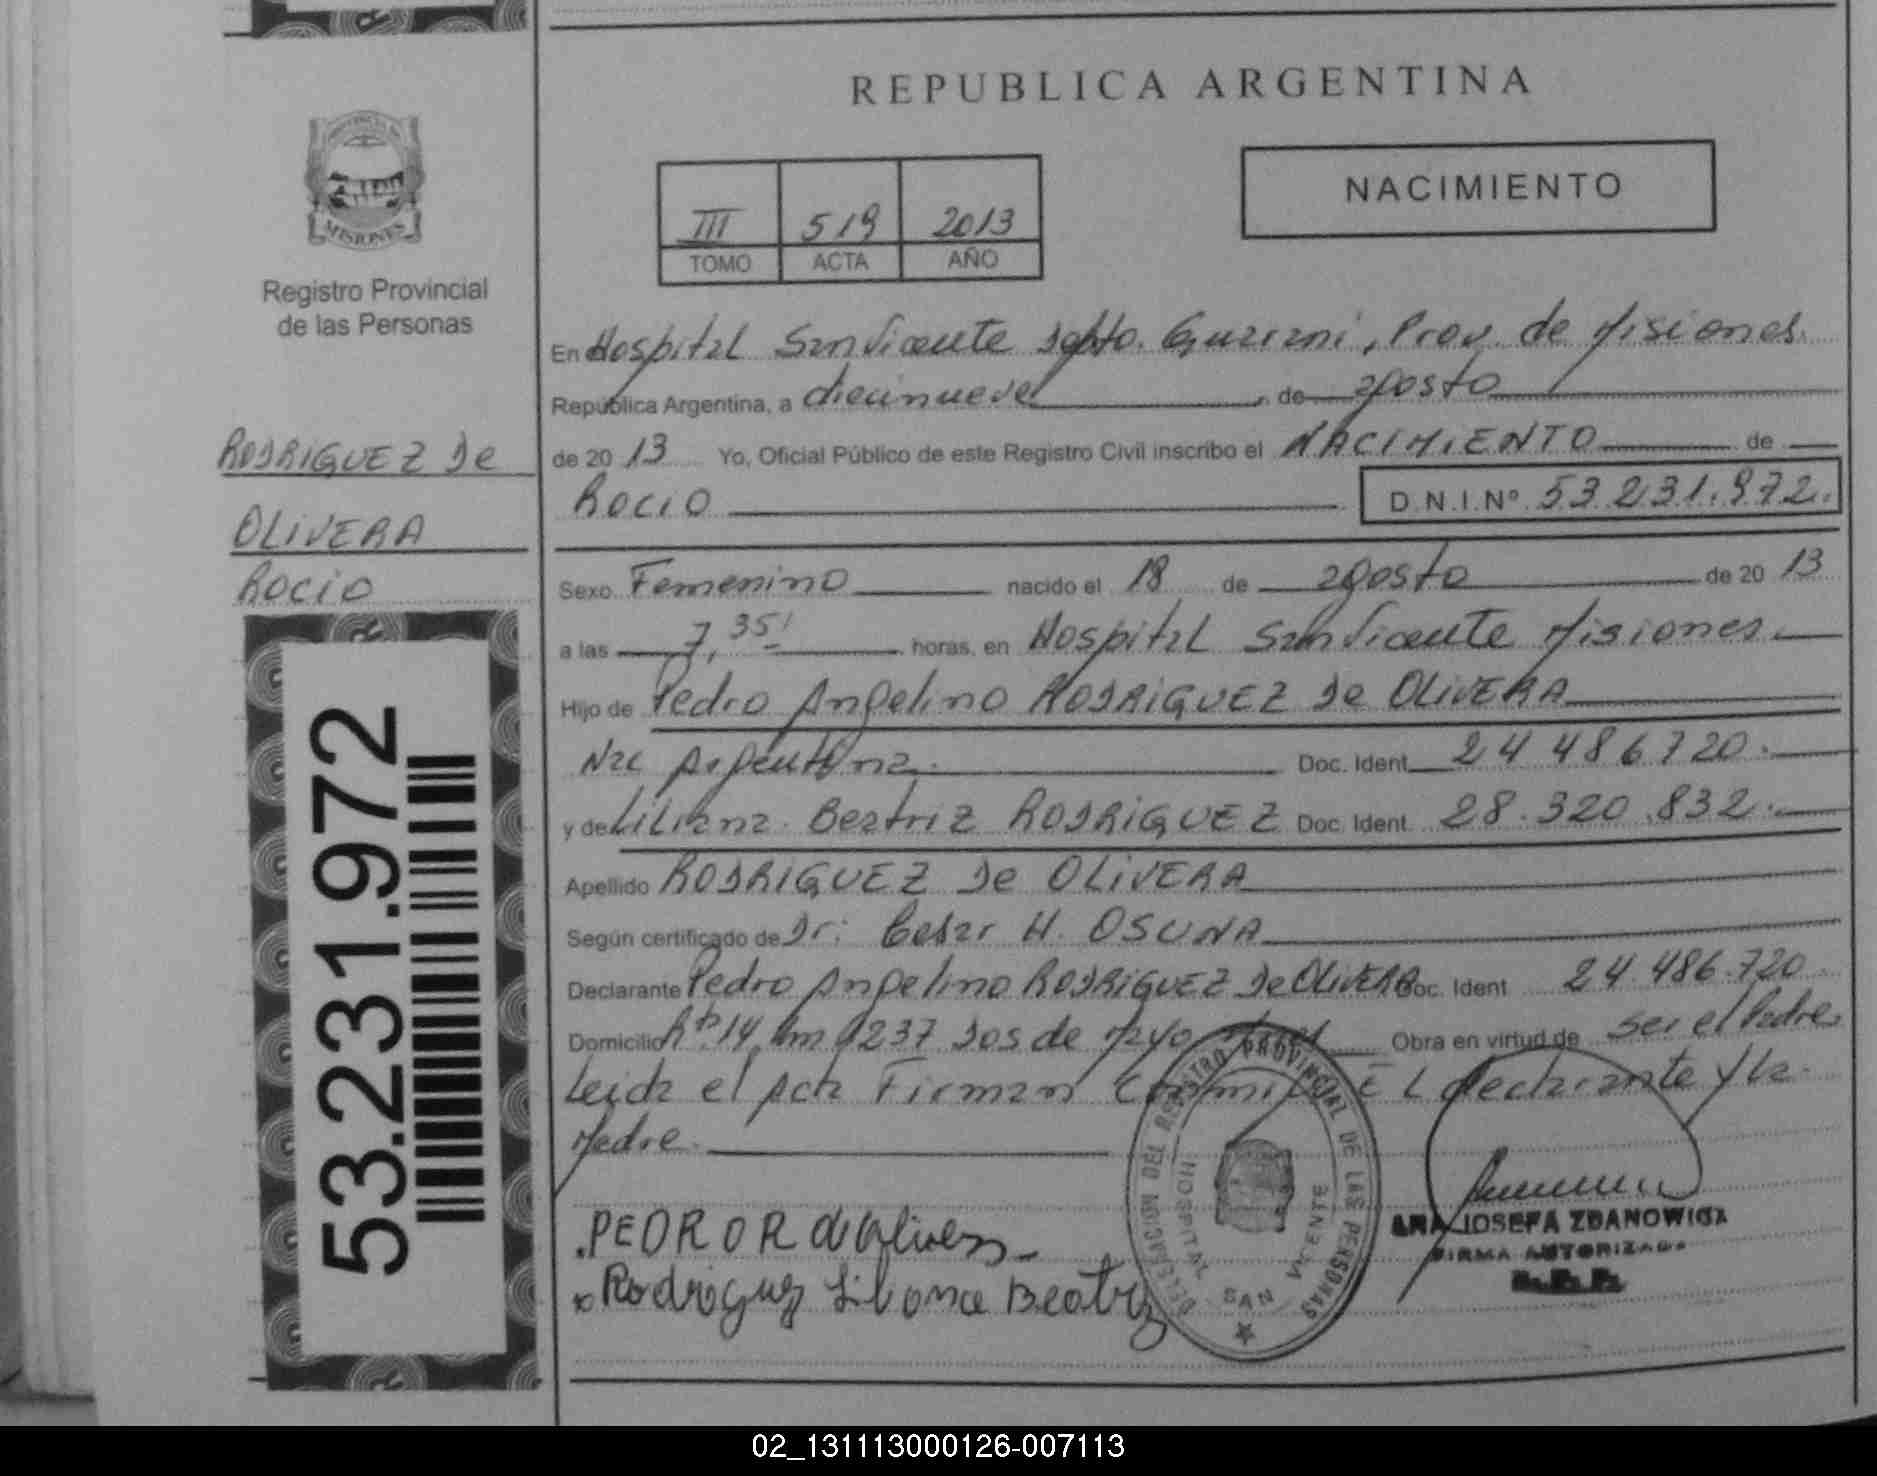 REPUBLICA ARGENTINA
NACIMIENTO
III 519 2013
TOMO ACTA AÑO
PROVINCIA DE
MISIONES
Registro Provincial
de las Personas
RODRIGUEZ De
OLIVERA
ROCIO
53.231.972
En Hospital San Vicente Dpto. Guarani, Prov. de Misiones.
República Argentina, a diecinueve, de agosto
de 20 13 Yo, Oficial Público de este Registro Civil inscribo el NACIMIENTO de
ROCIO D.N.I.Nº 53.231.972.
Sexo Femenino nacido el 18 de agosto de 20 13
a las 7,35' horas, en Hospital San Vicente Misiones.
Hijo de Pedro Angelino RODRIGUEZ De OLIVERA
Nac Argentina. Doc. Ident. 24 486720.
y de Liliana. Beatriz RODRIGUEZ Doc. Ident. 28.320.832.
Apellido RODRIGUEZ De OLIVERA
Según certificado de Dr: Cesar H. OSUNA
Declarante Pedro Angelino RODRIGUEZ De OLIVERA Doc. Ident 24.486.720
Domicilio Rta. 14 km 1237 Dos de Mayo Obra en virtud de ser el Padre
Leida el Acta Firman Conmigo EL declarante y La
Madre.
PEDRO R de Olivera
Rodriguez Liliana Beatriz
DELEGACION DEL REGISTRO PROVINCIAL DE LAS PERSONAS
HOSPITAL SAN VICENTE
ANA JOSEFA ZDANOWICZ
FIRMA AUTORIZADA
R.P.P.
02_131113000126-007113